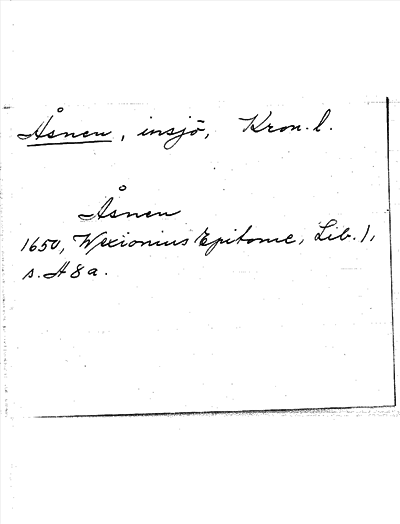 Åsnen, insjö, Kron. l.
Åsnen
1650, Wexionius Epitome, Lib. 1,
s. A 8 a.